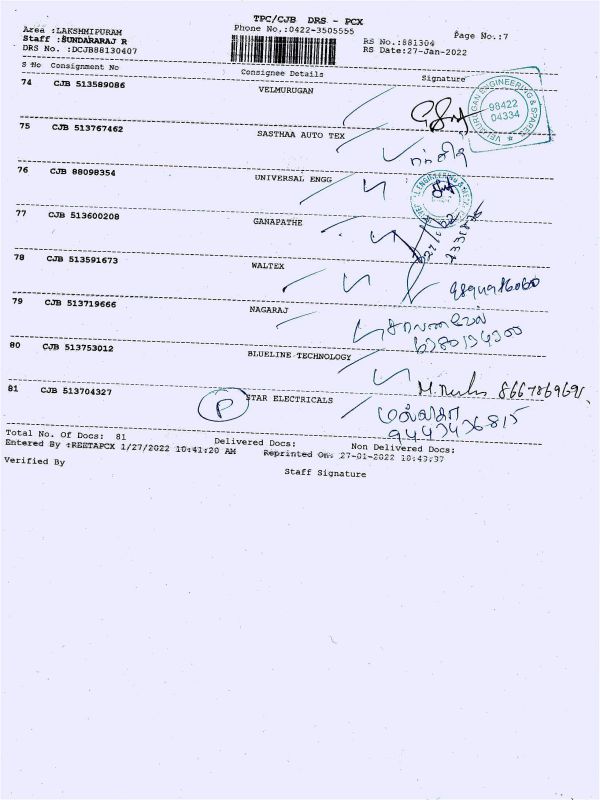 TPC/CJB DRS - PCX
Phone No.:0422-3505555
Page No.:7
Area :LAKSHMIPURAM
Staff :SUNDARARAJ R
DRS No. :DCJB88130407
RS No.:881304
RS Date:27-Jan-2022
S No Consignment No Consignee Details Signature
74 CJB 513589086 VELMURUGAN
VELMURUGAN ENGINEERING & SPARES
98422
04334
75 CJB 513767462 SASTHAA AUTO TEX
76 CJB 88098354 UNIVERSAL ENGG
77 CJB 513600208 GANAPATHE
78 CJB 513591673 WALTEX
79 CJB 513719666 NAGARAJ
80 CJB 513753012 BLUELINE TECHNOLOGY
81 CJB 513704327 P STAR ELECTRICALS
மல்லிகா
9443436815
Total No. Of Docs: 81 Delivered Docs: Non Delivered Docs:
Entered By :REETAPCX 1/27/2022 10:41:20 AM Reprinted On: 27-01-2022 10:43:37
Verified By Staff Signature